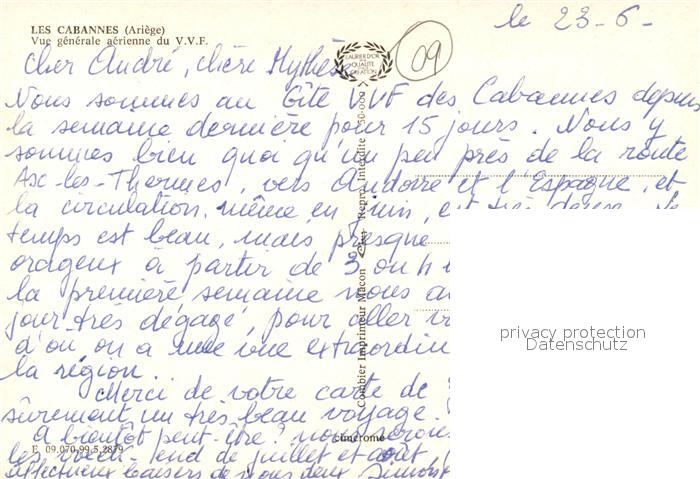 LES CABANNES (Ariège)
Vue générale aérienne du V.V.F.
le 23-6-
09
LAURIER D'OR
QUALITÉ
Cher André, chère Mythèse
Nous sommes au Gîte VVF des Cabannes depuis
la semaine dernière pour 15 jours. Nous y
sommes bien quoi qu'un peu près de la route
Ax-les-Thermes, vers Andorre et l'Espagne, et
la circulation, même en juin, est très dense. Le
temps est beau, mais presque
orageux à partir de 3 ou 4
la première semaine nous a
jour très dégagé, pour aller
d'où on a une vue extraordin
la région.
Merci de votre carte de
sûrement un très beau voyage.
A bientôt peut-être? nous serons
les week-end de juillet et août
affectueux baisers de nous deux Simone
Combier Imprimeur Mâcon
Repro. Interdite
cinérome
E 09.070.99.5.2879
privacy protection
Datenschutz